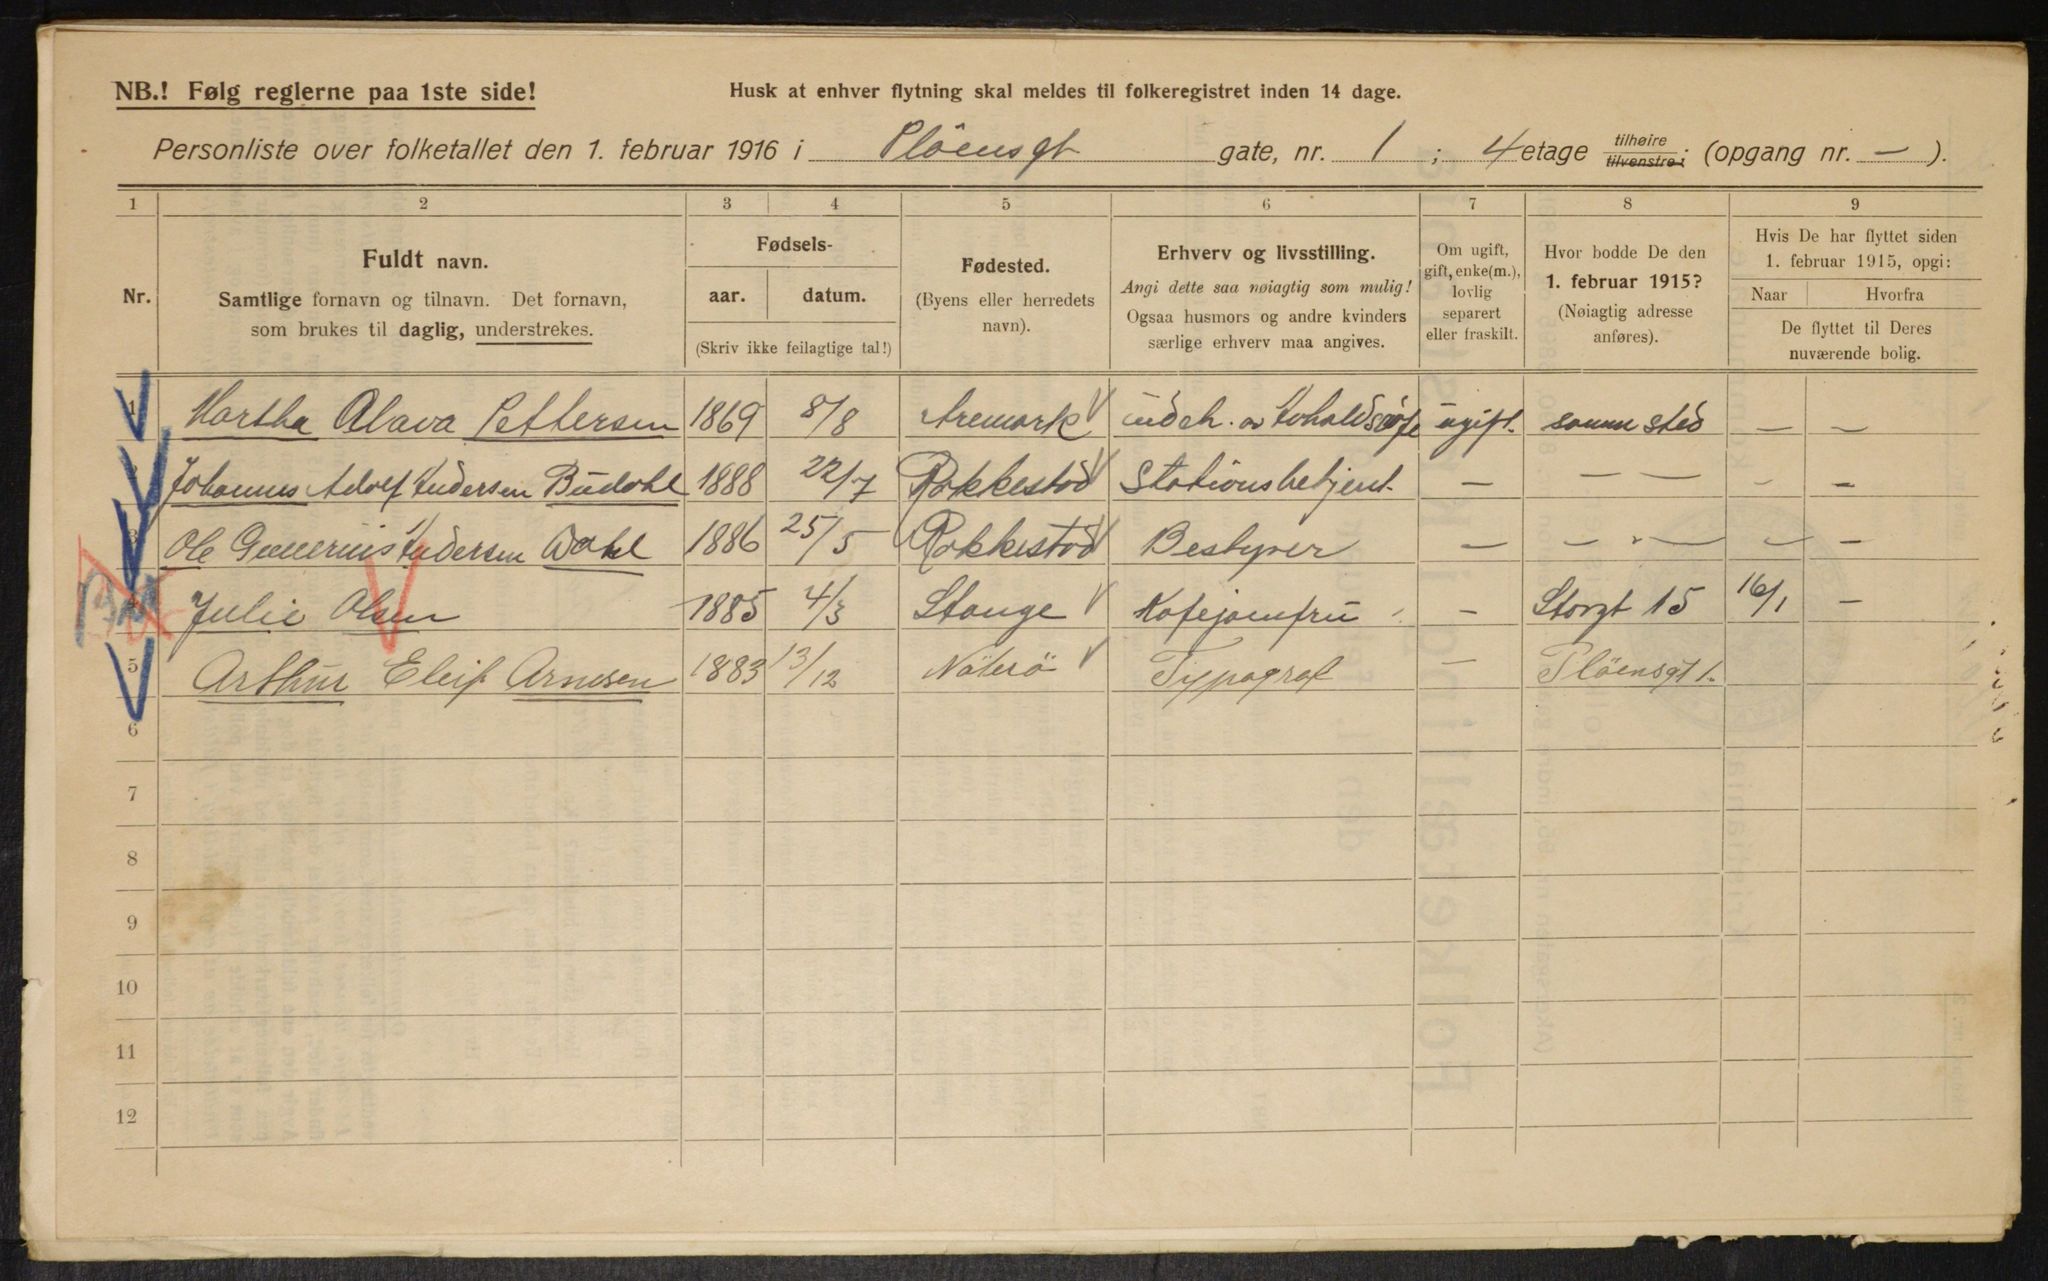 NB.! Følg reglerne paa 1ste side!
Husk at enhver flytning skal meldes til folkeregistret inden 14 dage.
Personliste over folketallet den 1. februar 1916 i Plöensgt gate, nr. 1 ; 4 etage tilhøire tilvenstre; (opgang nr. — ).
1 2 3 4 5 6 7 8 9
Nr.
Fuldt navn.
Samtlige fornavn og tilnavn. Det fornavn,
som brukes til daglig, understrekes.
Fødsels-
aar. datum.
(Skriv ikke feilagtige tal!)
Fødested.
(Byens eller herredets
navn).
Erhverv og livsstilling.
Angi dette saa nøiagtig som mulig!
Ogsaa husmors og andre kvinders
særlige erhverv maa angives.
Om ugift,
gift, enke(m.),
lovlig
separert
eller fraskilt.
Hvor bodde De den
1. februar 1915?
(Nøiagtig adresse
anføres).
Hvis De har flyttet siden
1. februar 1915, opgi:
Naar Hvorfra
De flyttet til Deres
nuværende bolig.
1 Martha Olava Pettersen 1869 8/8 Aremark ugift. samme sted — —
2 Johannes Adolf Andersen Budahl 1888 22/7 Rakkestad Stationsbetjent — — — - -
3 Ole Andersen Dahl 1886 25/5 Rakkestad Bestyrer — — — — —
4 Julie Olsen 1885 4/3 Stange Kafejomfru — Storgt 15 16/1 —
5 Arthur Eleif Arnesen 1883 13/12 Nöterö Typograf — Plöensgt 1.
6
7
8
9
10
11
12